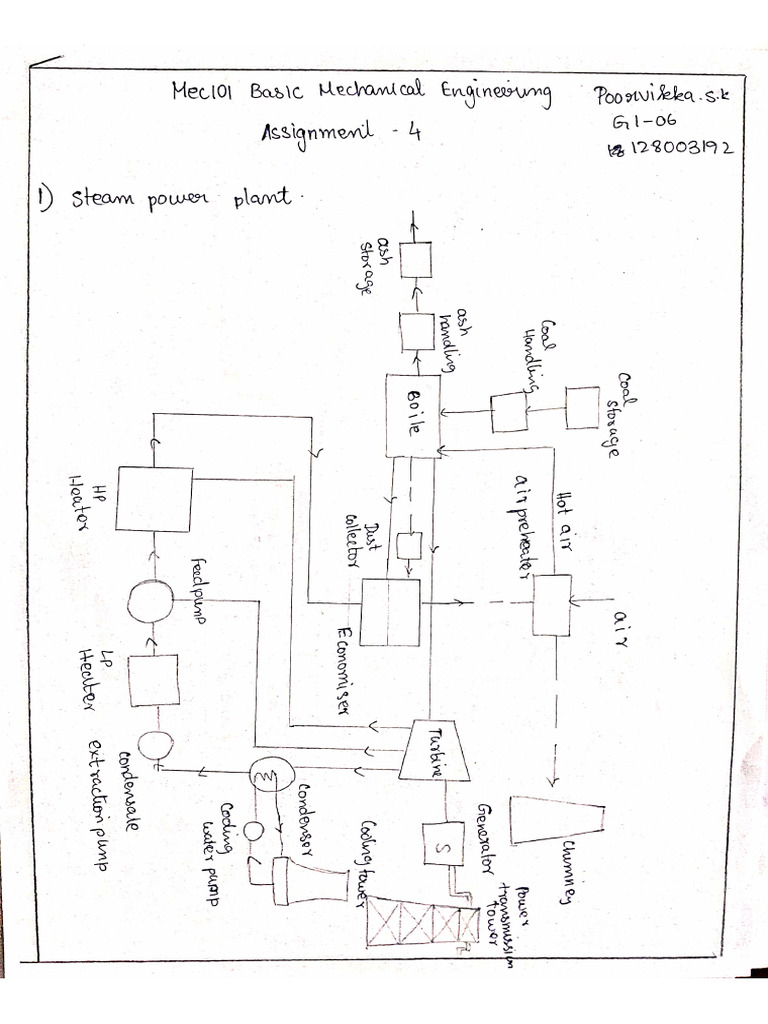 Mec101 Basic Mechanical Engineering
Poorvikka.S.K
G1-06
128003192
Assignment - 4
1) Steam power plant.
ash
storage
ash
handling
Coal
Handling
Coal
storage
Boile
Hot air
air preheater
air
Dust
collector
Economiser
HP
Heater
Feed pump
LP
Heater
condensate
extraction pump
Turbine
Generator
S
Condensor
Cooling
water pump
Cooling tower
Power
transmission
tower
Chimney